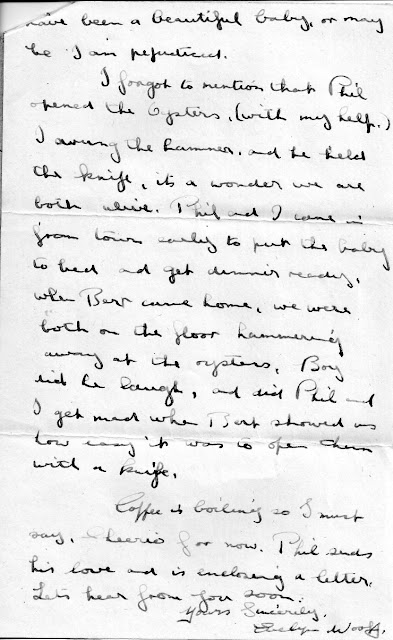 have been a beautiful baby, or may
be I am prejudiced.
I forgot to mention that Phil
opened the Oysters, (with my help.)
I swung the hammer, and he held
the knife, its a wonder we are
both alive. Phil and I came in
from town early to put the baby
to bed and get dinner ready,
when Bart came home, we were
both on the floor hammering
away at the oysters, Boy
did he laugh, and did Phil and
I get mad when Bart showed us
how easy it was to open them
with a knife.
Coffee is boiling so I must
say, Cheerio for now. Phil sends
his love and is enclosing a letter.
Lets hear from you soon.
Yours Sincerely,
Evelyn